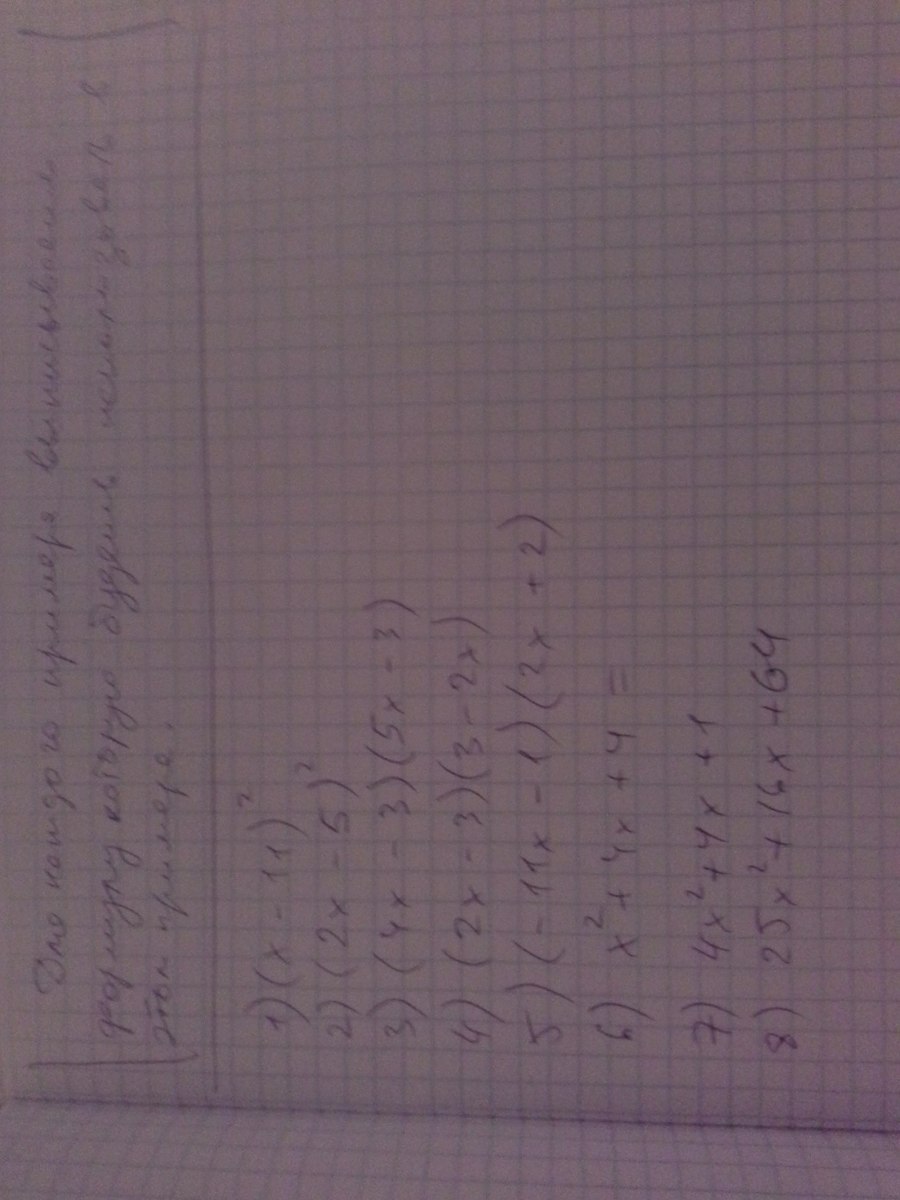 Для каждого примера выписываем
формулу которую будем использовать в
этом примере.
1) (x - 11)²
2) (2x - 5)²
3) (4x - 3)(5x - 3)
4) (2x - 3)(3 - 2x)
5) (-11x - 1)(2x + 2)
6) x² + 4x + 4 =
7) 4x² + 4x + 1
8) 25x² + 16x + 64